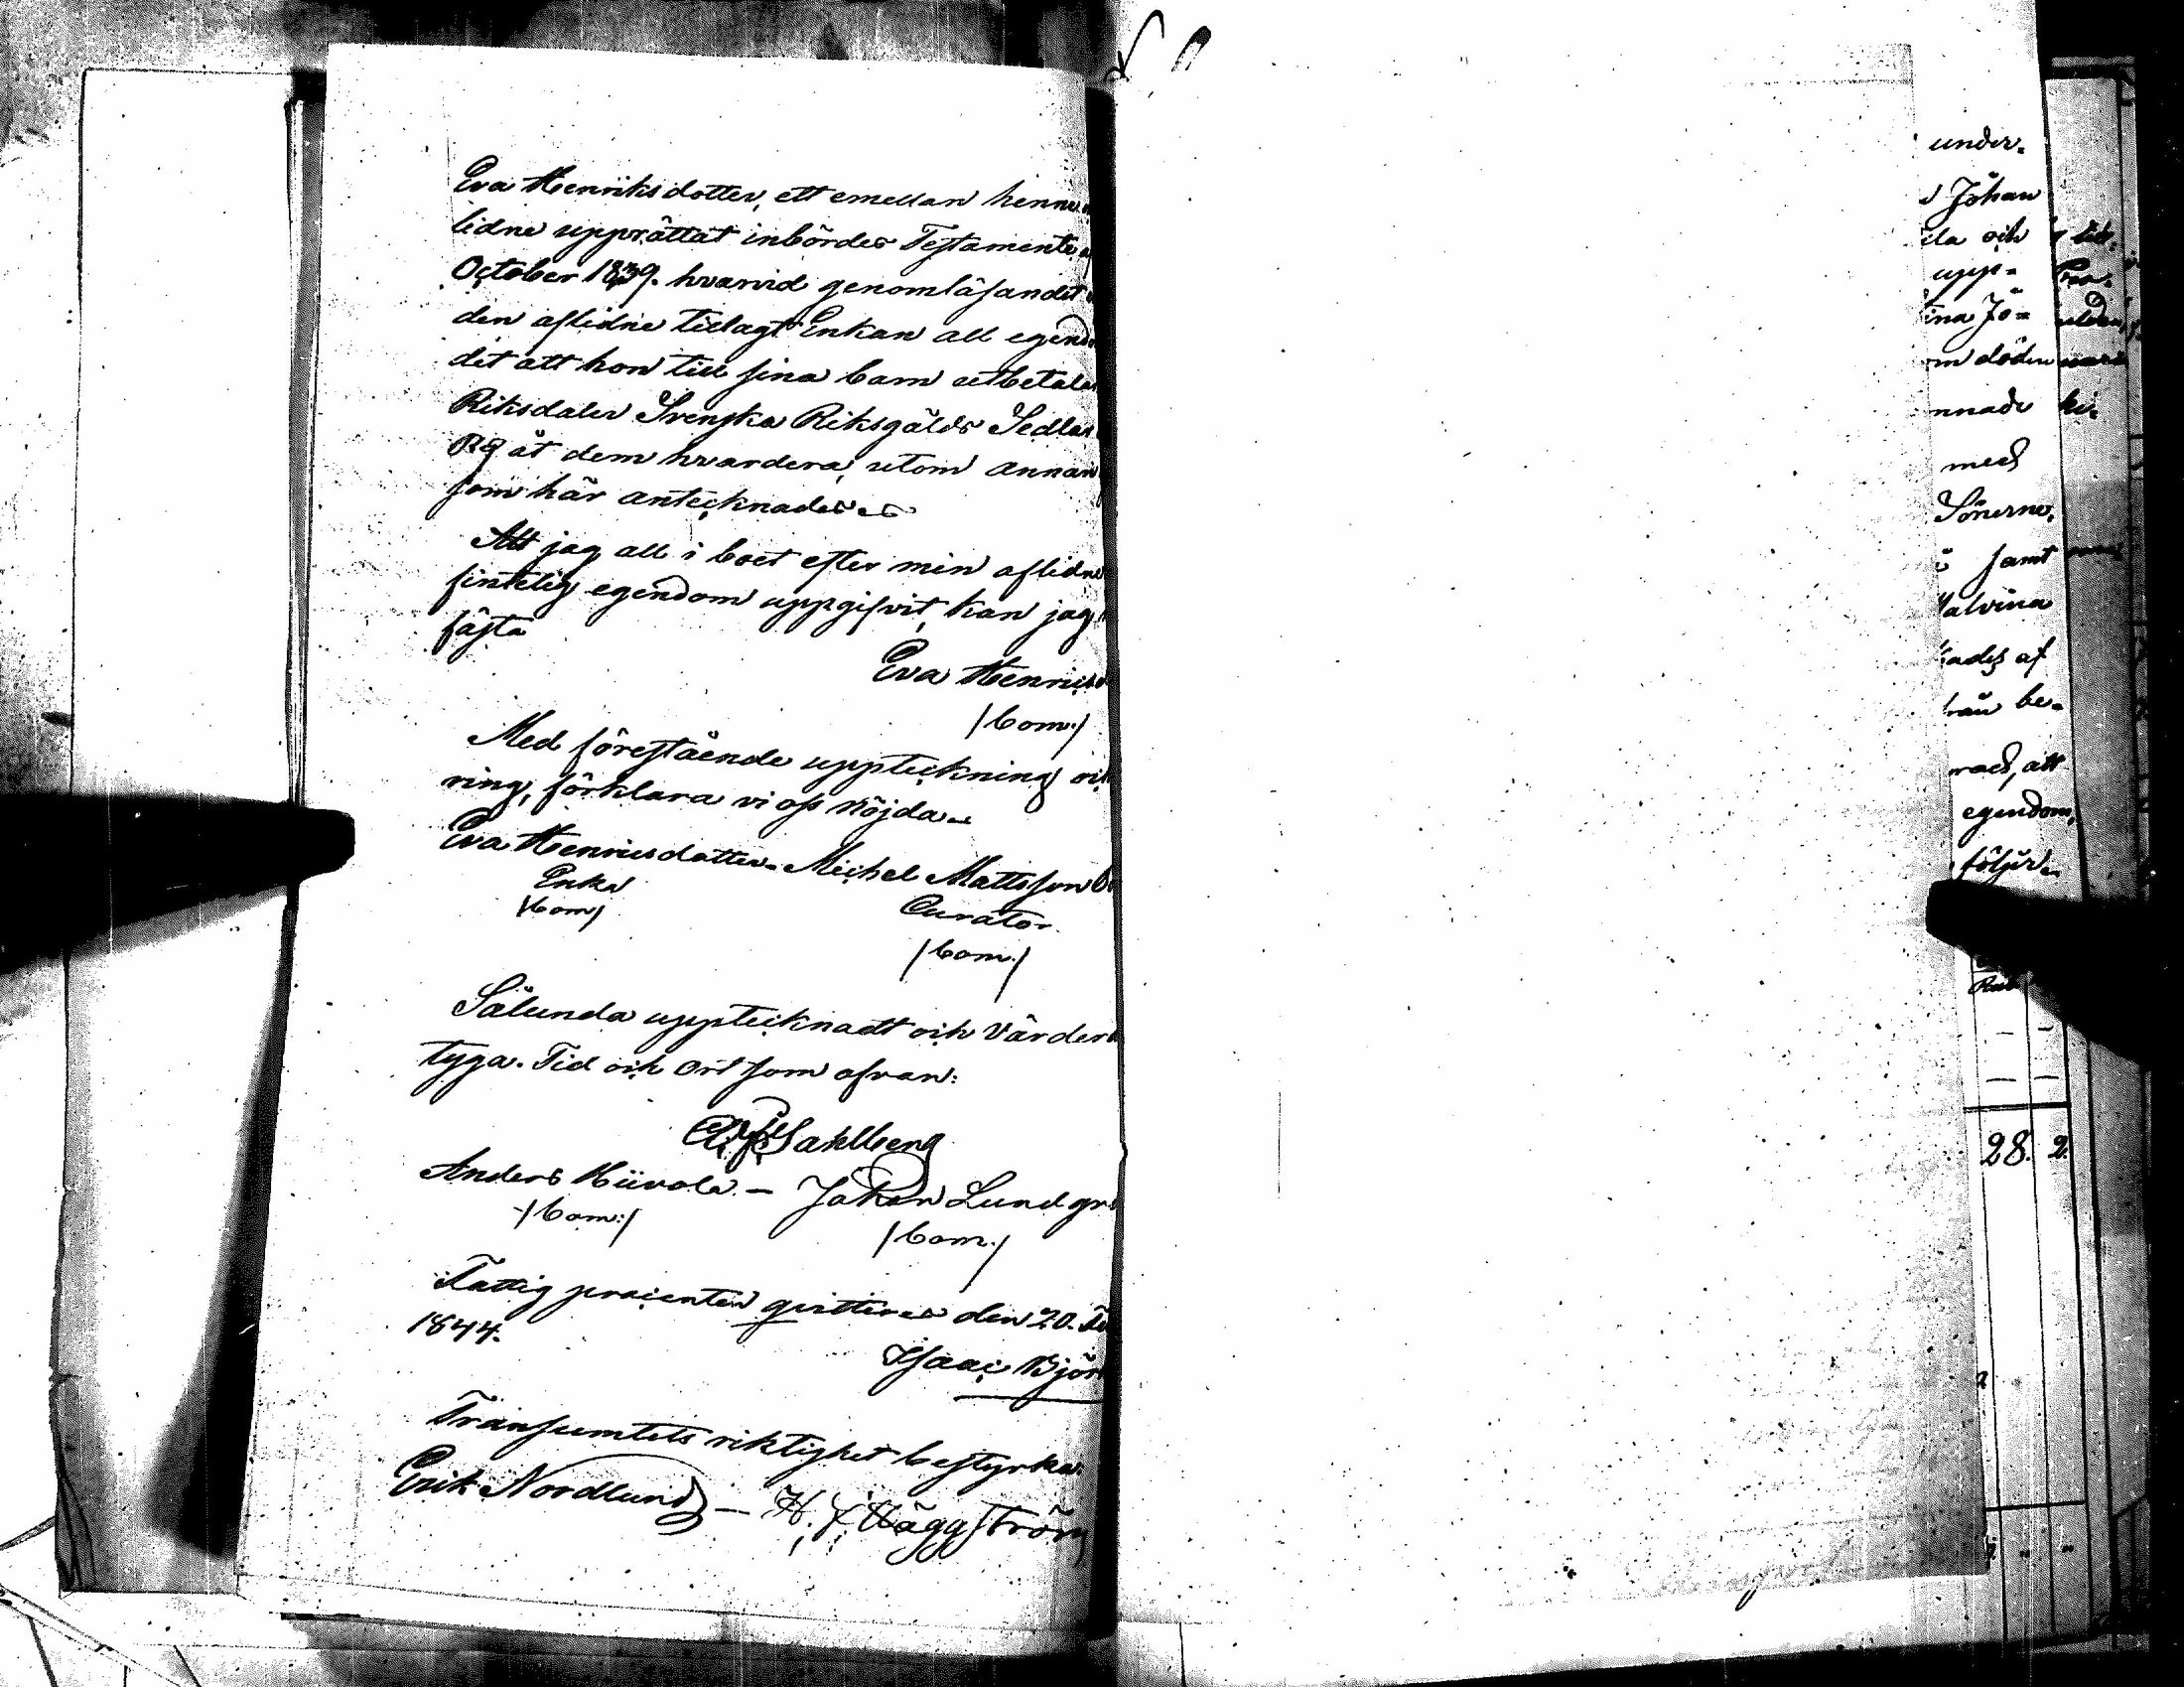 Eva Henriksdotter, ett emellan henne
lidne upprättat inbördes Testamente
October 1839. hvarvid genomläsandet
den aflidne tillagt Enkan all egend
det att hon till sina barn utbetala
Riksdaler Svenska Riksgälds Sedlar
Rg åt dem hvardera, utom annan
som här antecknades
Att jag all i boet efter min aflidne
fintelig egendom uppgifvit, kan jag
fästa
Eva Henrics
/bom:/
Med förestående uppteckning och
ring, förklara vi oss nöjda
Eva Henricsdotter. Michel Mattsson
Enka Curator
/bom/ /bom:/
Sålunda upptecknadt och värder
tyga. Tid och ort som ofvan:
Sahlberg
Anders Kiivola. — Johan Lundgr
/bom:/ /bom:/
Fattig procenten qvitteres den 20.
1844.
Isaac Björ
Transumtets riktighet bestyrka:
Erik Nordlund — H. J. Häggström
under-
Johan
ela och
upp-
ina Jo-
om döden
nnade
med
Sönerne,
samt
alvina
ades af
be-
rad, att
egendom,
följer.
28. 2.